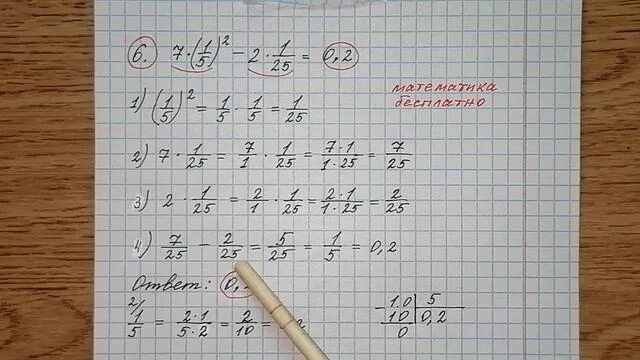 6. 7·(1/5)² − 2·1/25 = 0,2
математика
бесплатно
1) (1/5)² = 1/5 · 1/5 = 1/25
2) 7 · 1/25 = 7/1 · 1/25 = 7·1/1·25 = 7/25
3) 2 · 1/25 = 2/1 · 1/25 = 2·1/1·25 = 2/25
4) 7/25 − 2/25 = 5/25 = 1/5 = 0,2
Ответ: 0,
2/ 1/5 = 2·1/5·2 = 2/10 = 2
1.0 | 5
10 | 0,2
0